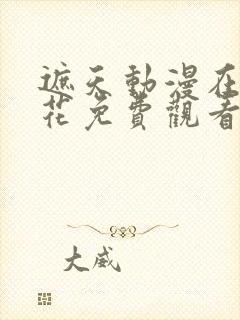 遮天動漫在
花免費觀看
大威